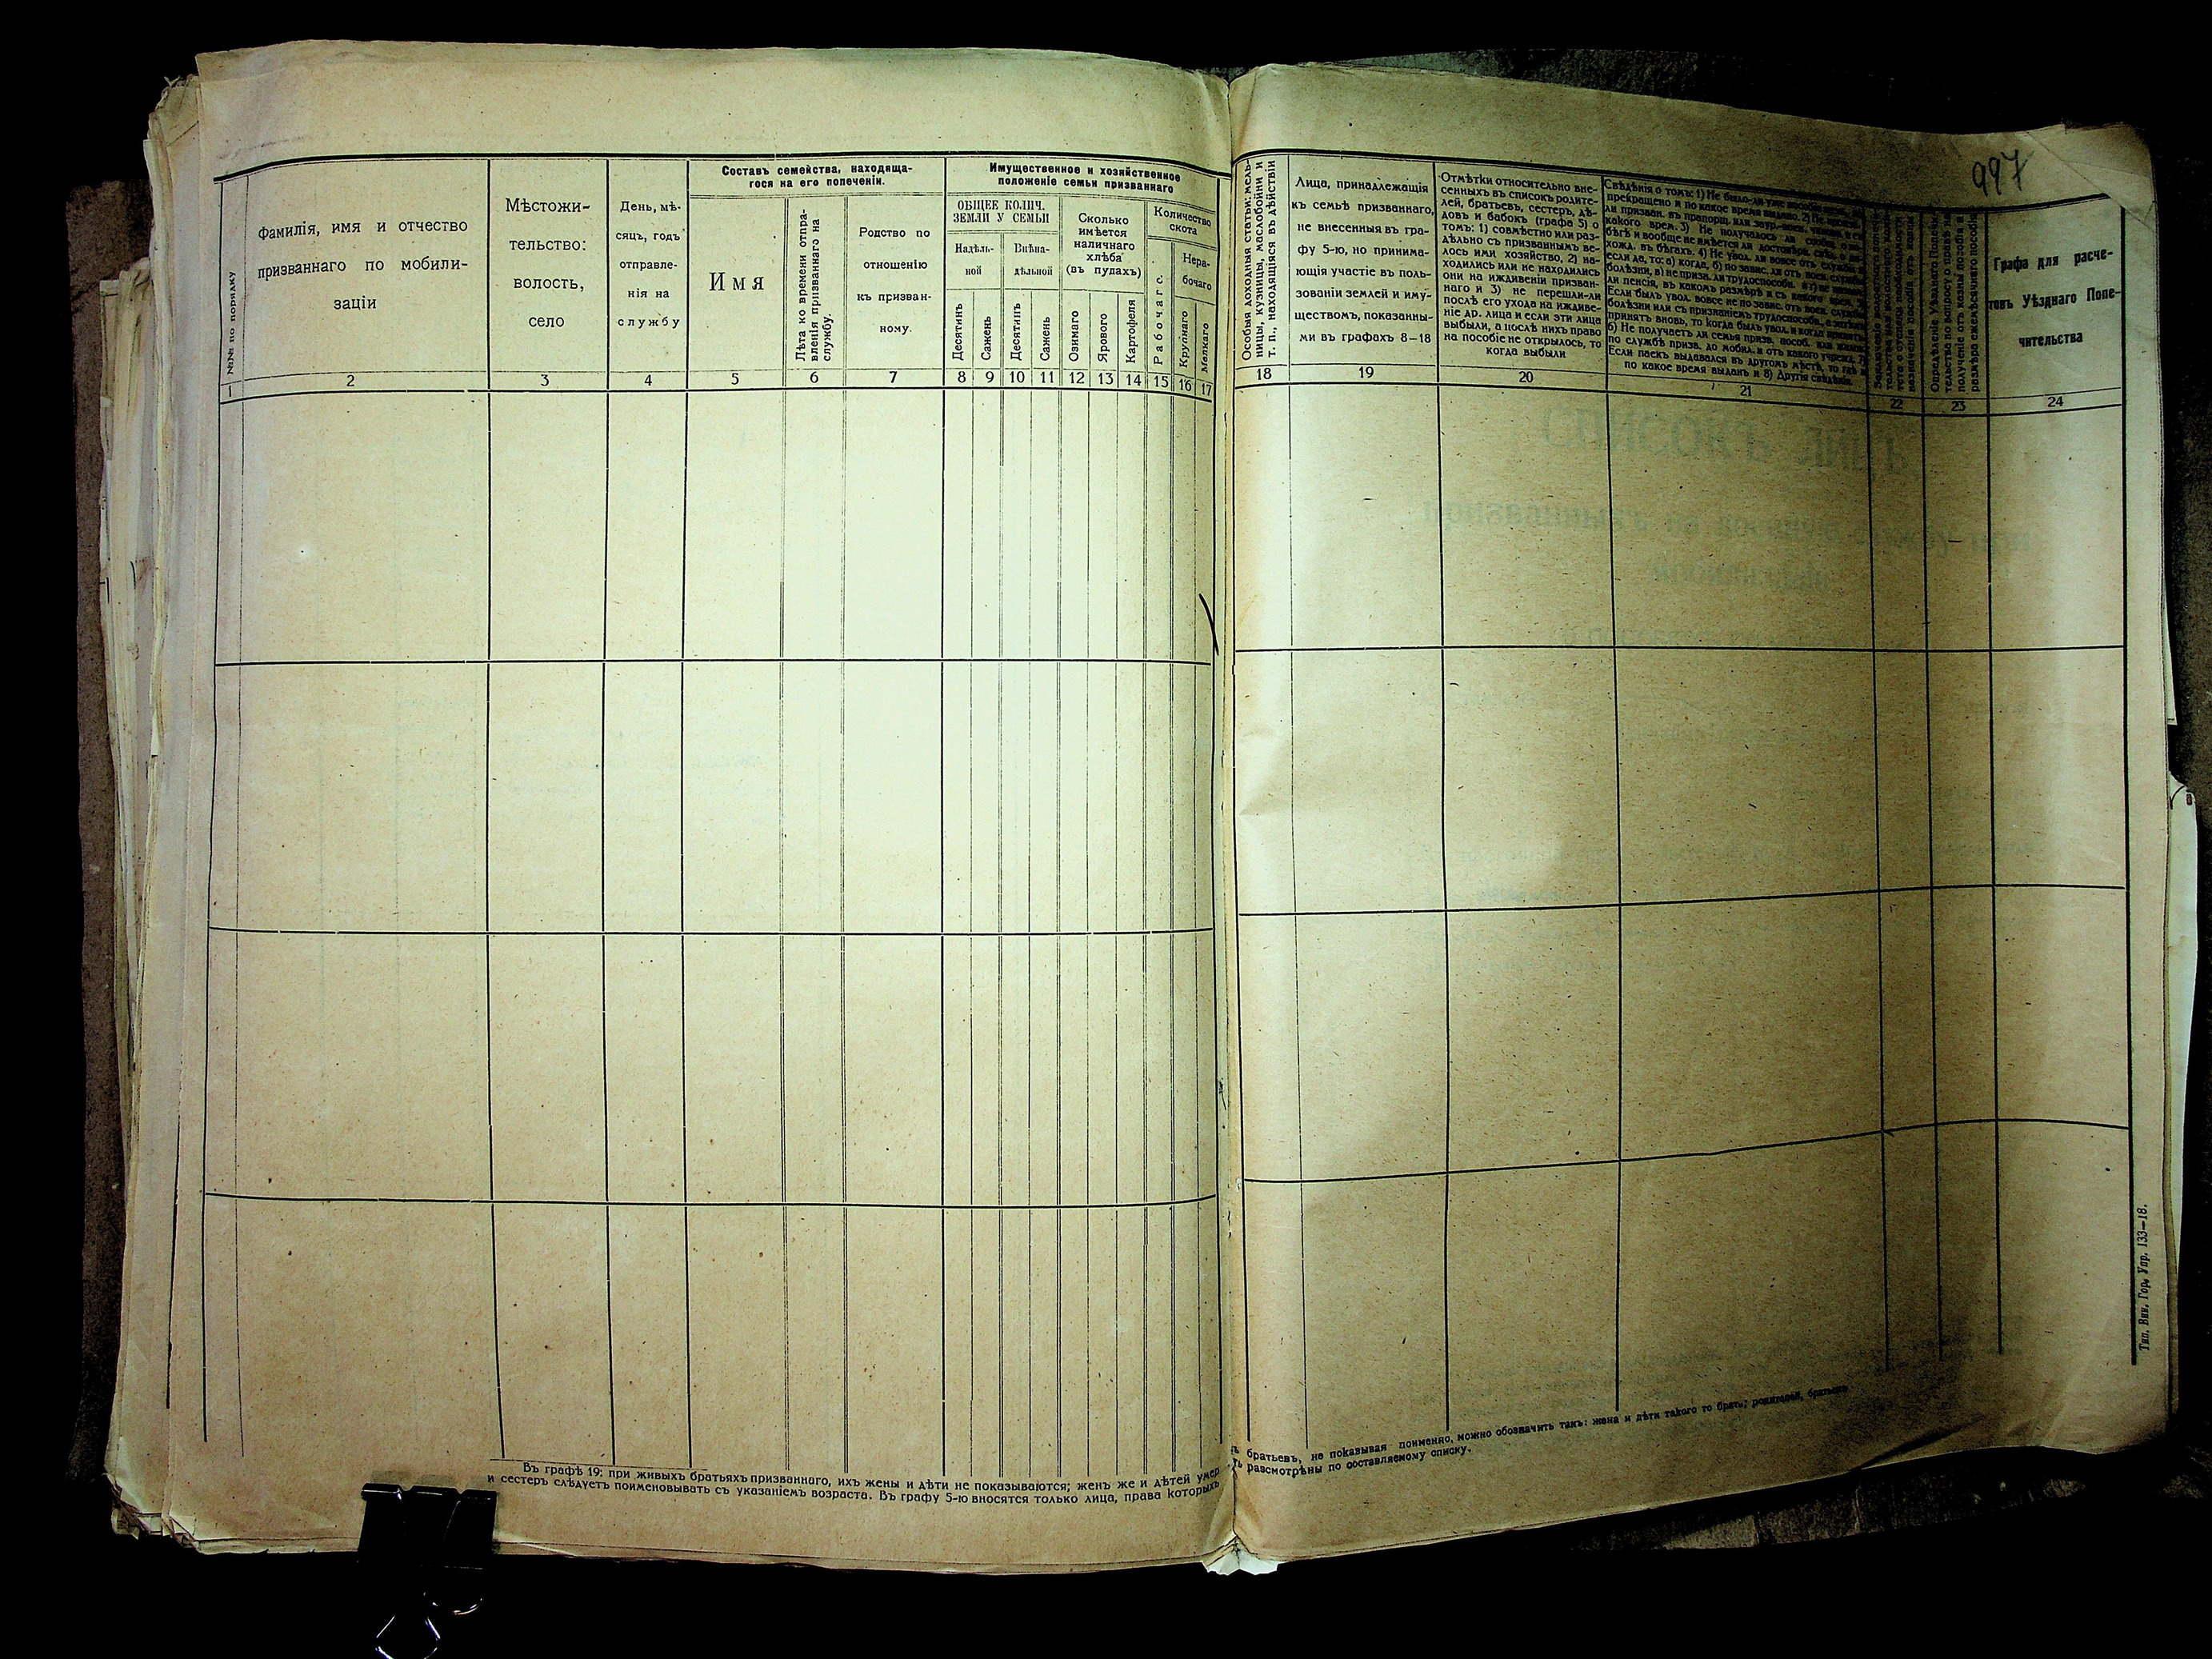 997
№№ по порядку
Фамилія, имя и отчество
призваннаго по мобили-
заціи
Мѣстожи-
тельство:
волость,
село
День, мѣ-
сяцъ, годъ
отправле-
нія на
службу
Составъ семейства, находяща-
гося на его попеченіи.
Имя
Лѣта ко времени отпра-
вленія призваннаго на
службу.
Родство по
отношенію
къ призван-
ному.
Имущественное и хозяйственное
положеніе семьи призваннаго
ОБЩЕЕ КОЛИЧ.
ЗЕМЛИ У СЕМЬИ
Надѣль-
ной
Внѣна-
дѣльной
Десятинъ
Сажень
Десятинъ
Сажень
Сколько
имѣется
наличнаго
хлѣба
(въ пудахъ)
Озимаго
Ярового
Картофеля
Количество
скота
Рабочаго
Нера-
бочаго
Крупнаго
Мелкаго
Особыя доходныя статьи: мель-
ницы, кузницы, маслобойни и
т. п., находящіяся въ дѣйствіи
Лица, принадлежащія
къ семьѣ призваннаго,
не внесенныя въ гра-
фу 5-ю, но принима-
ющія участіе въ поль-
зованіи землей и иму-
ществомъ, показанны-
ми въ графахъ 8—18
Отмѣтки относительно вне-
сенныхъ въ списокъ родите-
лей, братьевъ, сестеръ, дѣ-
довъ и бабокъ (графа 5) о
томъ: 1) совмѣстно или раз-
дѣльно съ призваннымъ ве-
лось ими хозяйство, 2) на-
ходились или не находились
они на иждивеніи призван-
наго и 3) не перешли-ли
послѣ его ухода на иждиве-
ніе др. лица и если эти лица
выбыли, а послѣ нихъ право
на пособіе не открылось, то
когда выбыли
Свѣдѣнія о томъ: 1) Не было-ли уже пособіе
прекращено и по какое время выдано. 2) Не
ли призван. въ прапорщ. или заур.-воен. чиновн. и съ
какого врем. 3) Не получалось ли сообщ. о
бѣгѣ и вообще не имѣется ли достовѣрн. свѣд. о на-
хожд. въ бѣгахъ. 4) Не увол. ли вовсе отъ службы и
если да, то: а) когда, б) по завис. ли отъ воен. службы
болѣзни, в) не призн. ли трудоспособн. и г) не
ли пенсія, въ какомъ размѣрѣ и съ какого врем. 5)
Если былъ увол. вовсе не по завис. отъ воен. службы
болѣзни или съ признаніемъ трудоспособн., а затѣмъ
принятъ вновь, то когда былъ увол. и когда принятъ.
6) Не получаетъ ли семья призв. пособ. или
по службѣ призв. до мобил. и отъ какого учрежд. 7)
Если паекъ выдавался въ другомъ мѣстѣ, то гдѣ и
по какое время выданъ и 8) Другія свѣдѣнія.
Графа для расче-
товъ Уѣзднаго Попе-
чительства
1 2 3 4 5 6 7 8 9 10 11 12 13 14 15 16 17 18 19 20 21 22 23 24
Въ графѣ 19: при живыхъ братьяхъ призваннаго, ихъ жены и дѣти не показываются; женъ же и дѣтей умер
ъ братьевъ, не показывая поименно, можно обозначить такъ: жена и дѣти такого то брата; родителей, братьевъ
и сестеръ слѣдуетъ поименовывать съ указаніемъ возраста. Въ графу 5-ю вносятся только лица, права которыхъ
ть разсмотрѣны по составляемому списку.
Тип. Вин. Гор. Упр. 133—18.